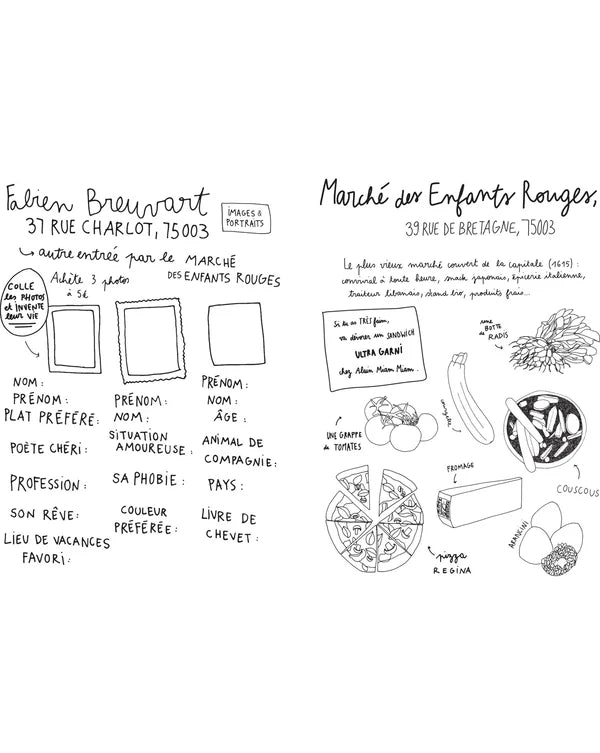 Fabien Breuvart
37 RUE CHARLOT, 75003
IMAGES &
PORTRAITS
autre entrée par le MARCHÉ
DES ENFANTS ROUGES
COLLE
les PHOTOS
et INVENTE
leur VIE
Achète 3 photos
à 5€
NOM :
PRÉNOM :
PLAT PRÉFÉRÉ :
POÈTE CHÉRI :
PROFESSION :
SON RÊVE :
LIEU DE VACANCES
FAVORI :
PRÉNOM :
NOM :
SITUATION
AMOUREUSE :
SA PHOBIE :
COULEUR
PRÉFÉRÉE :
PRÉNOM :
NOM :
ÂGE :
ANIMAL DE
COMPAGNIE :
PAYS :
LIVRE DE
CHEVET :
Marché des Enfants Rouges,
39 RUE DE BRETAGNE, 75003
Le plus vieux marché couvert de la capitale (1615) :
convivial à toute heure, snack japonais, épicerie italienne,
traiteur libanais, stand bio, produits frais...
Si tu as TRÈS faim,
va dévorer un SANDWICH
ULTRA GARNI
chez Alain Miam Miam.
une
BOTTE
de RADIS
courgette
UNE GRAPPE
de TOMATES
FROMAGE
COUSCOUS
pizza
REGINA
ARANCINI